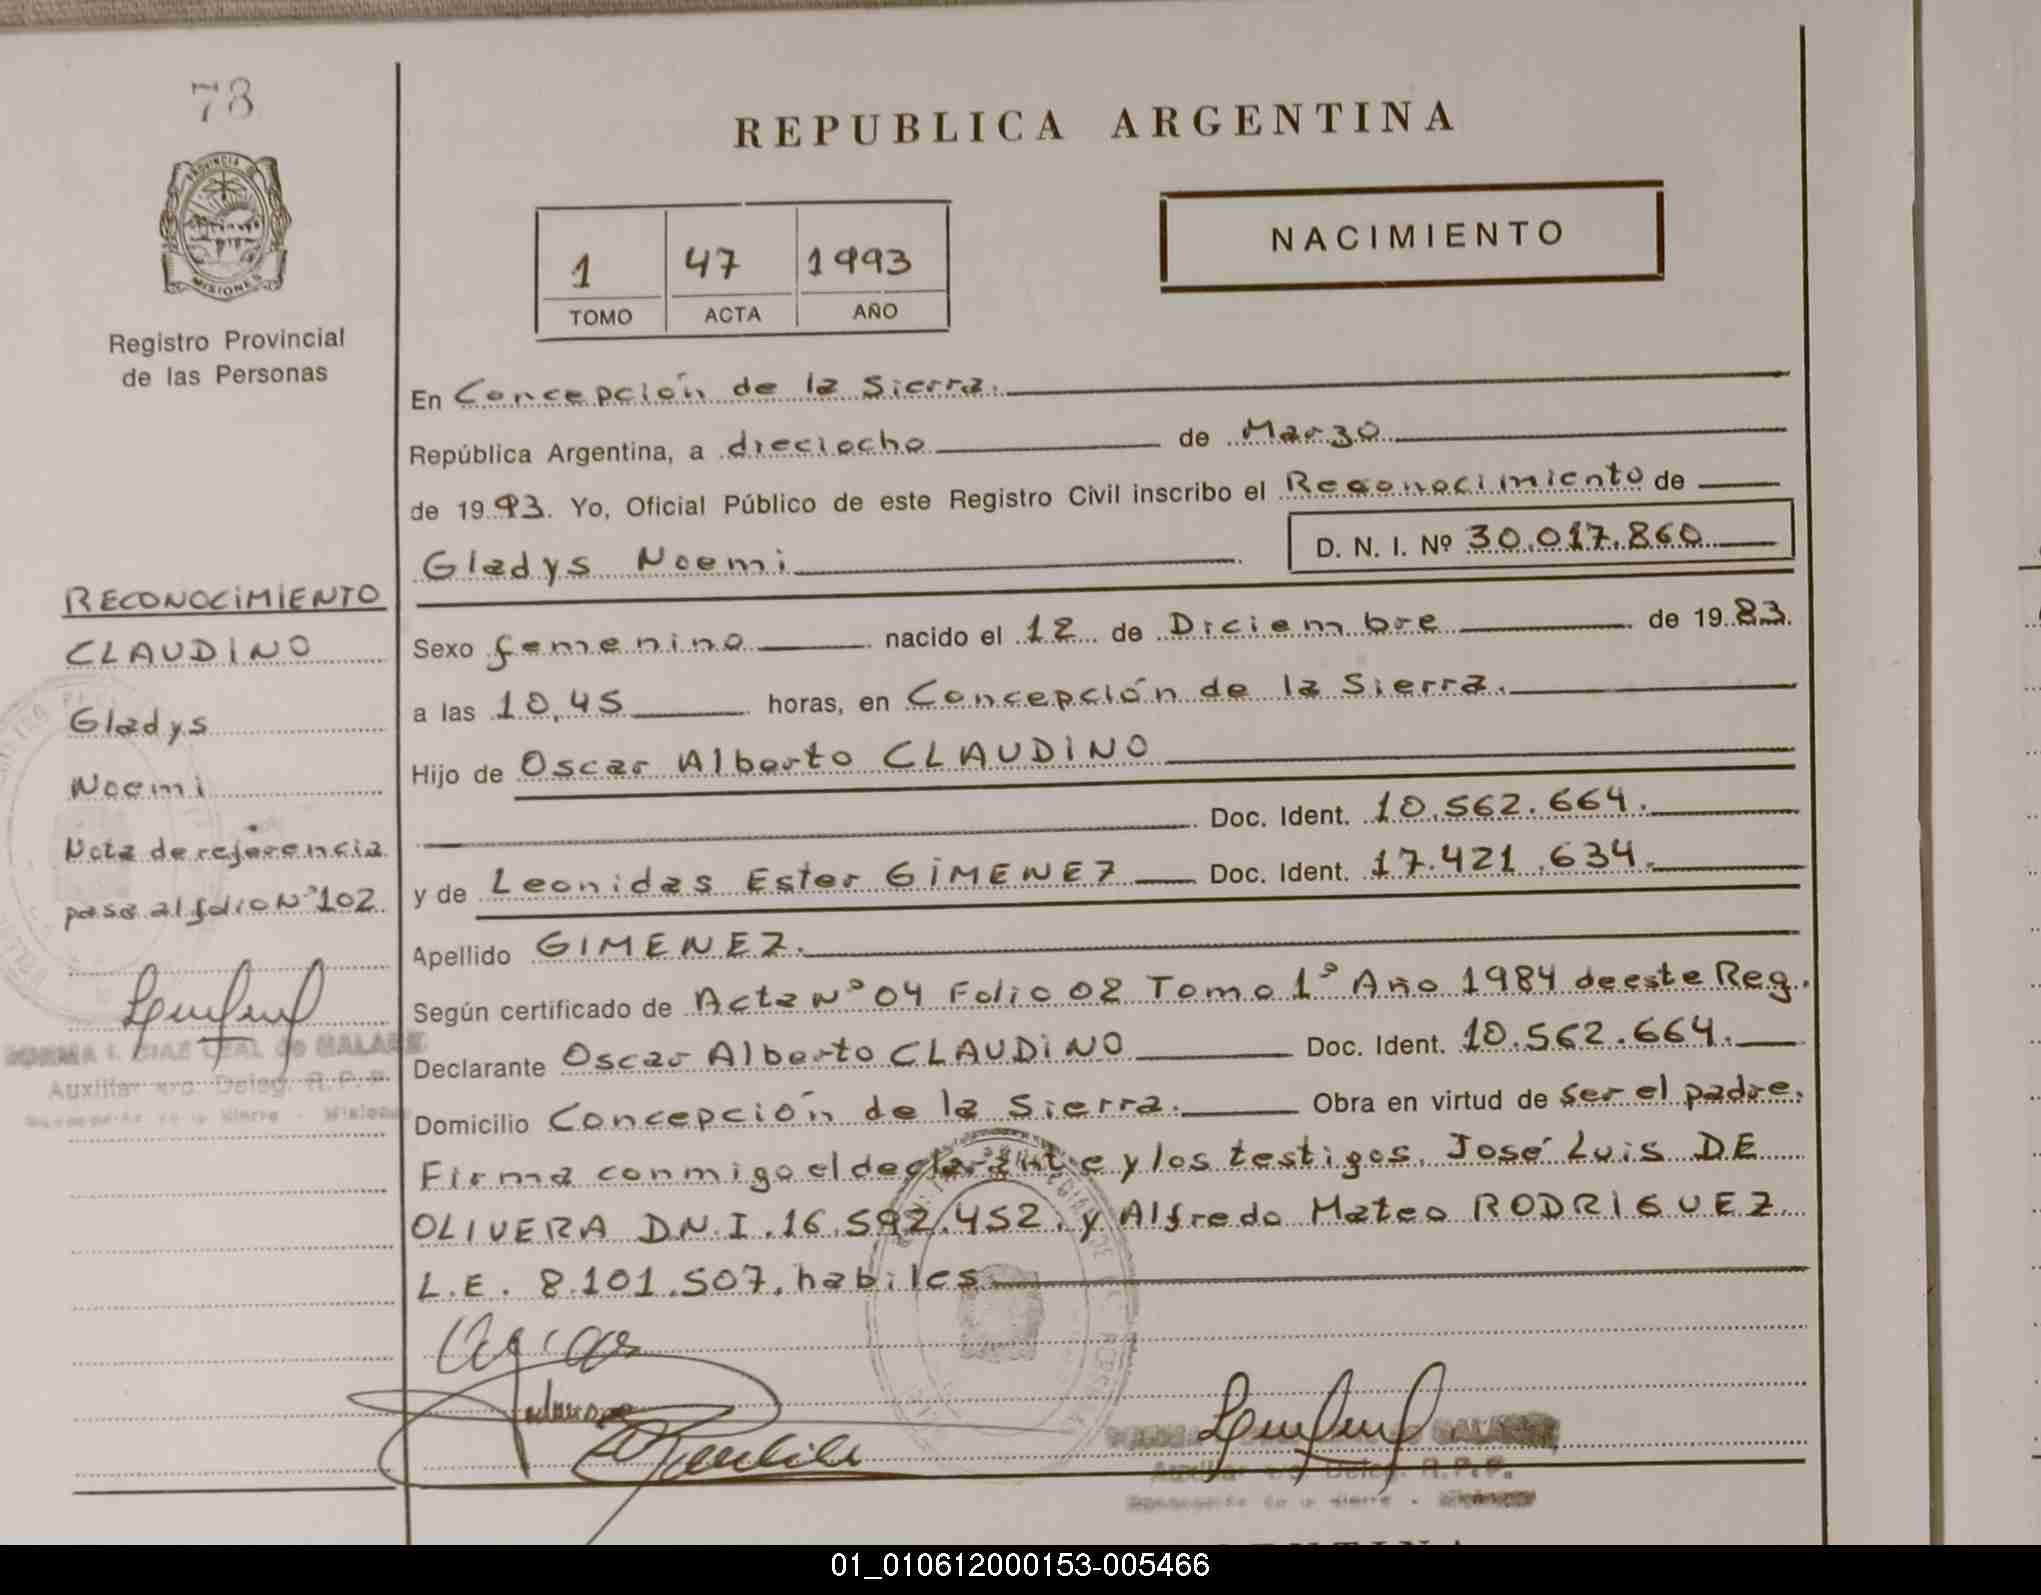 78
PROVINCIA DE
MISIONES
Registro Provincial
de las Personas
REPUBLICA ARGENTINA
NACIMIENTO
1 47 1993
TOMO ACTA AÑO
En Concepción de la Sierra.
República Argentina, a dieciocho de Marzo
de 1993. Yo, Oficial Público de este Registro Civil inscribo el Reconocimiento de
Gladys Noemi D. N. I. Nº 30.017.860
Sexo femenino nacido el 12 de Diciembre de 1983.
a las 10,45 horas, en Concepción de la Sierra.
Hijo de Oscar Alberto CLAUDINO
Doc. Ident. 10.562.664.
y de Leonidas Ester GIMENEZ Doc. Ident. 17.421.634.
Apellido GIMENEZ.
Según certificado de Acta Nº 04 Folio 02 Tomo 1º Año 1984 de este Reg.
Declarante Oscar Alberto CLAUDINO Doc. Ident. 10.562.664.
Domicilio Concepción de la Sierra. Obra en virtud de ser el padre.
Firma conmigo el declarante y los testigos. José Luis DE
OLIVERA D.N.I. 16.592.452. y Alfredo Mateo RODRIGUEZ
L.E. 8.101.507. habiles
RECONOCIMIENTO
CLAUDINO
Gladys
Noemi
Nota de referencia
pasa al folio Nº 102
Auxiliar Deleg. R.P.P.
Auxiliar Deleg. R.P.P.
01_010612000153-005466